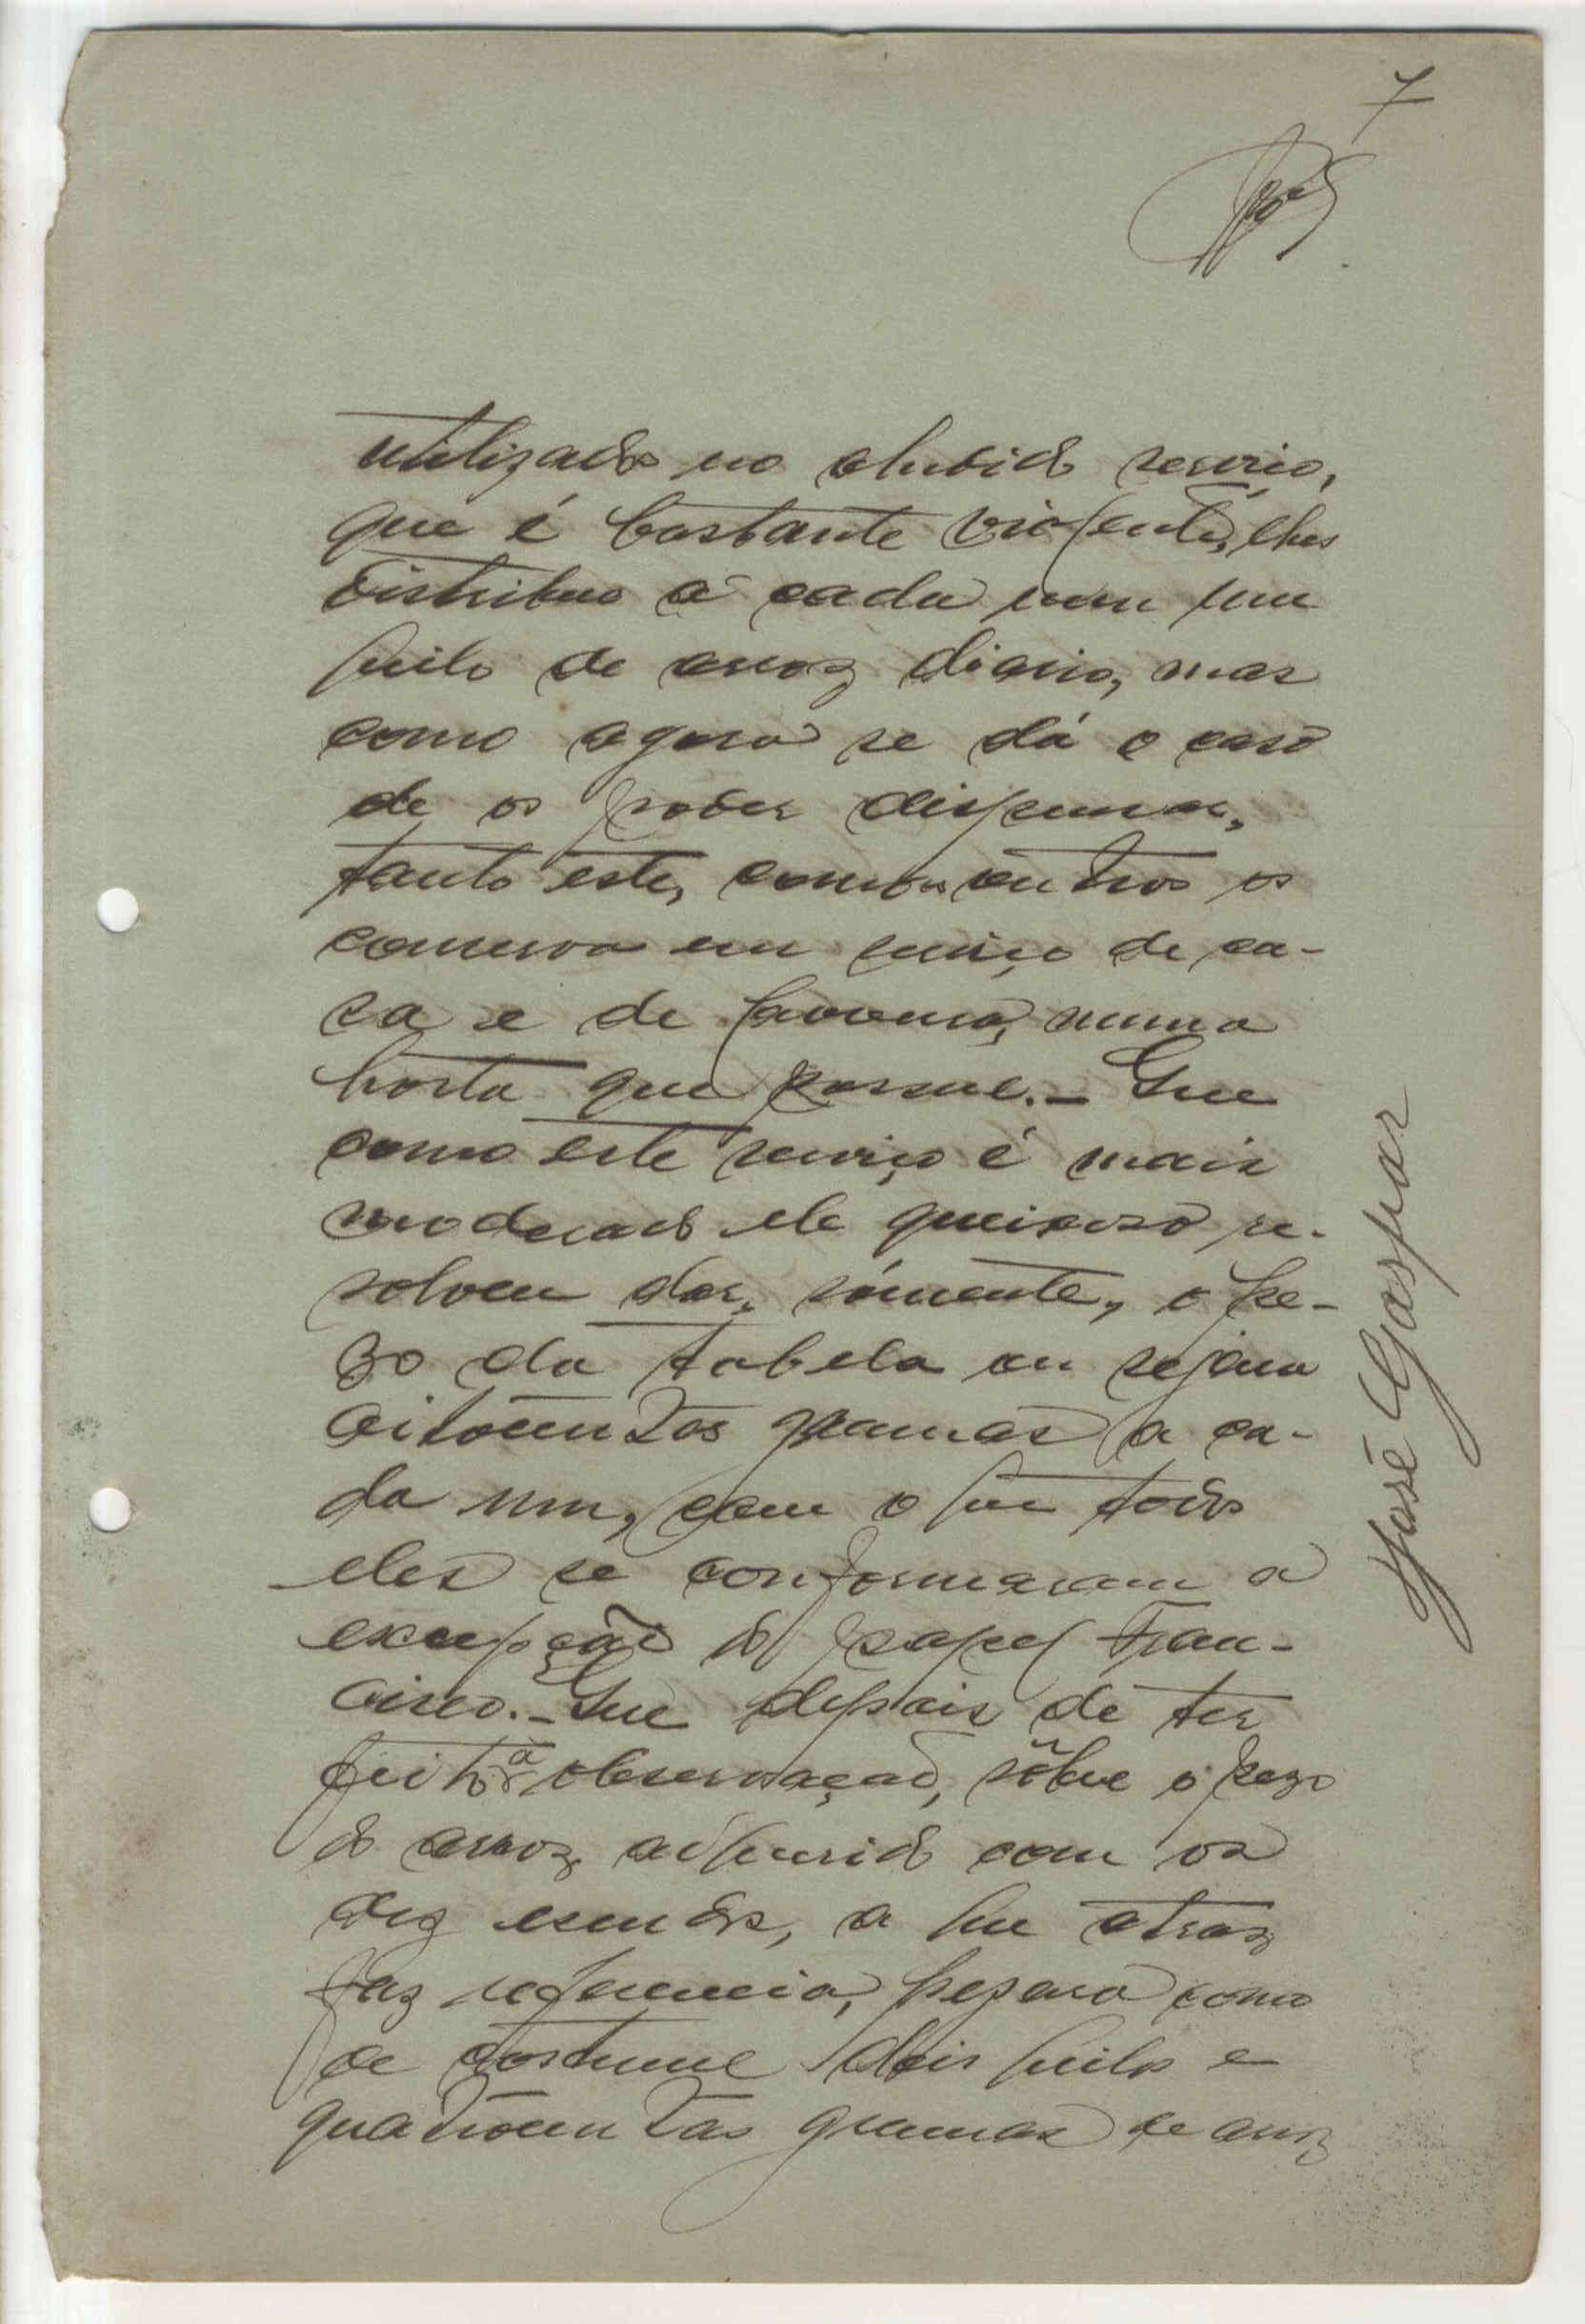 7
utilizado no aludido serviço,
que é bastante violento, lhes
distribue a cada um um
quilo de arroz diario, mas
como agora se dá o caso
de os poder dispensar,
tanto este, como os outros os
conserva em serviço de ca-
sa e de lavoura, numa
horta que possue. _ Que
como este serviço é mais
moderado ele queixoso re-
solveu dar, sómente, o pe-
zo da tabela ou sejam
oitocentos gramas a ca-
da um, com o que todos
eles se conformaram a
excepção do Fran-
cisco. _ Que depois de ter
feito a observação, sôbre o pezo
do arroz adquirido com os
dez escudos, a que atraz
faz referencia, pezara como
de costume dois quilos e
quatrocentas gramas de arroz
José Gaspar